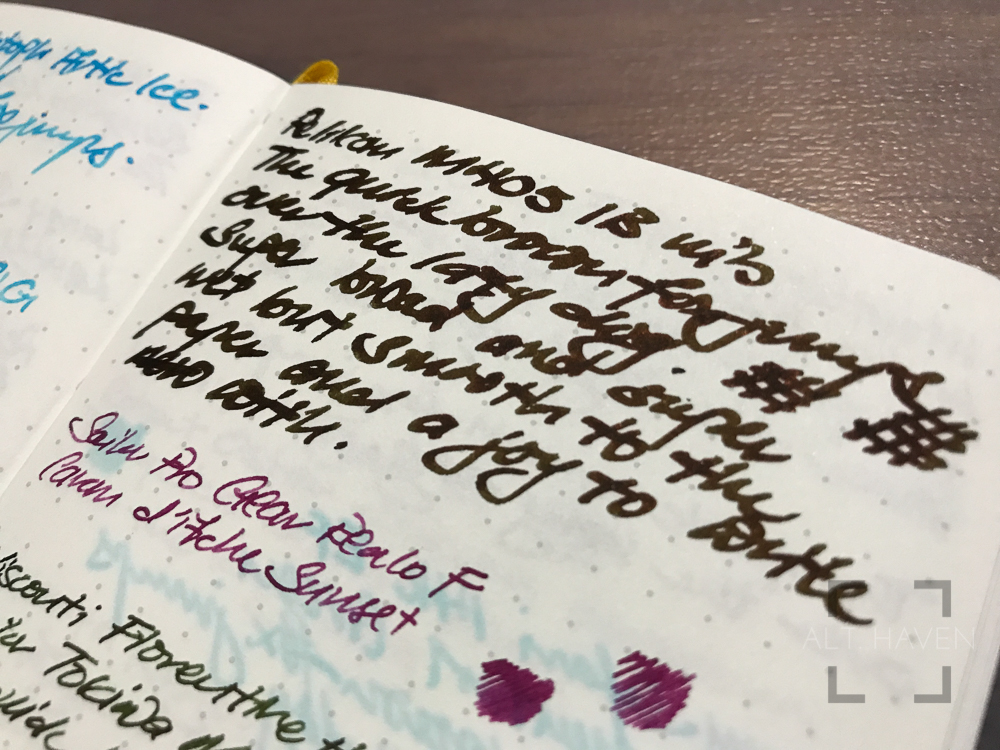 Artic Ice.
jumps.
Pelikan M405 IB nib
The quick brown fox jumps
over the lazy dog.
Super broad and super
wet but smooth to the
paper and a joy to write
with.
Sailor Pro Gear Realo F
Caran d'Ache Sunset
Florentine
Tokiwa
ALT. HAVEN